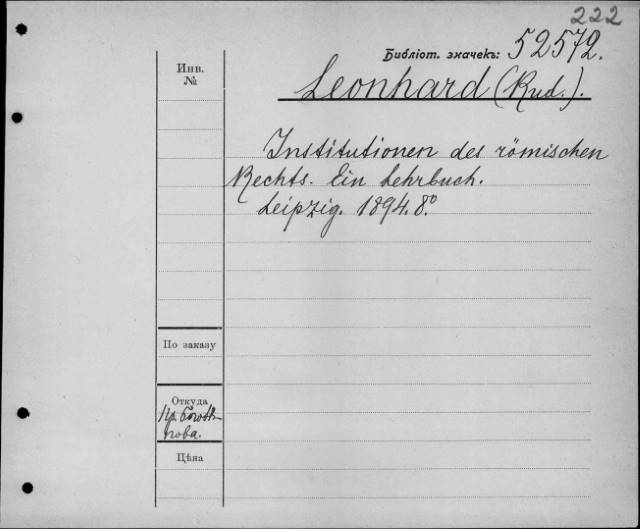 222
Библіот. значекъ: 52572.
Инв.
№
Leonhard (Rud.).
Institutionen des römischen
Rechts. Ein Lehrbuch.
Leipzig. 1894. 8º
По заказу
Откуда
нова.
Цѣна